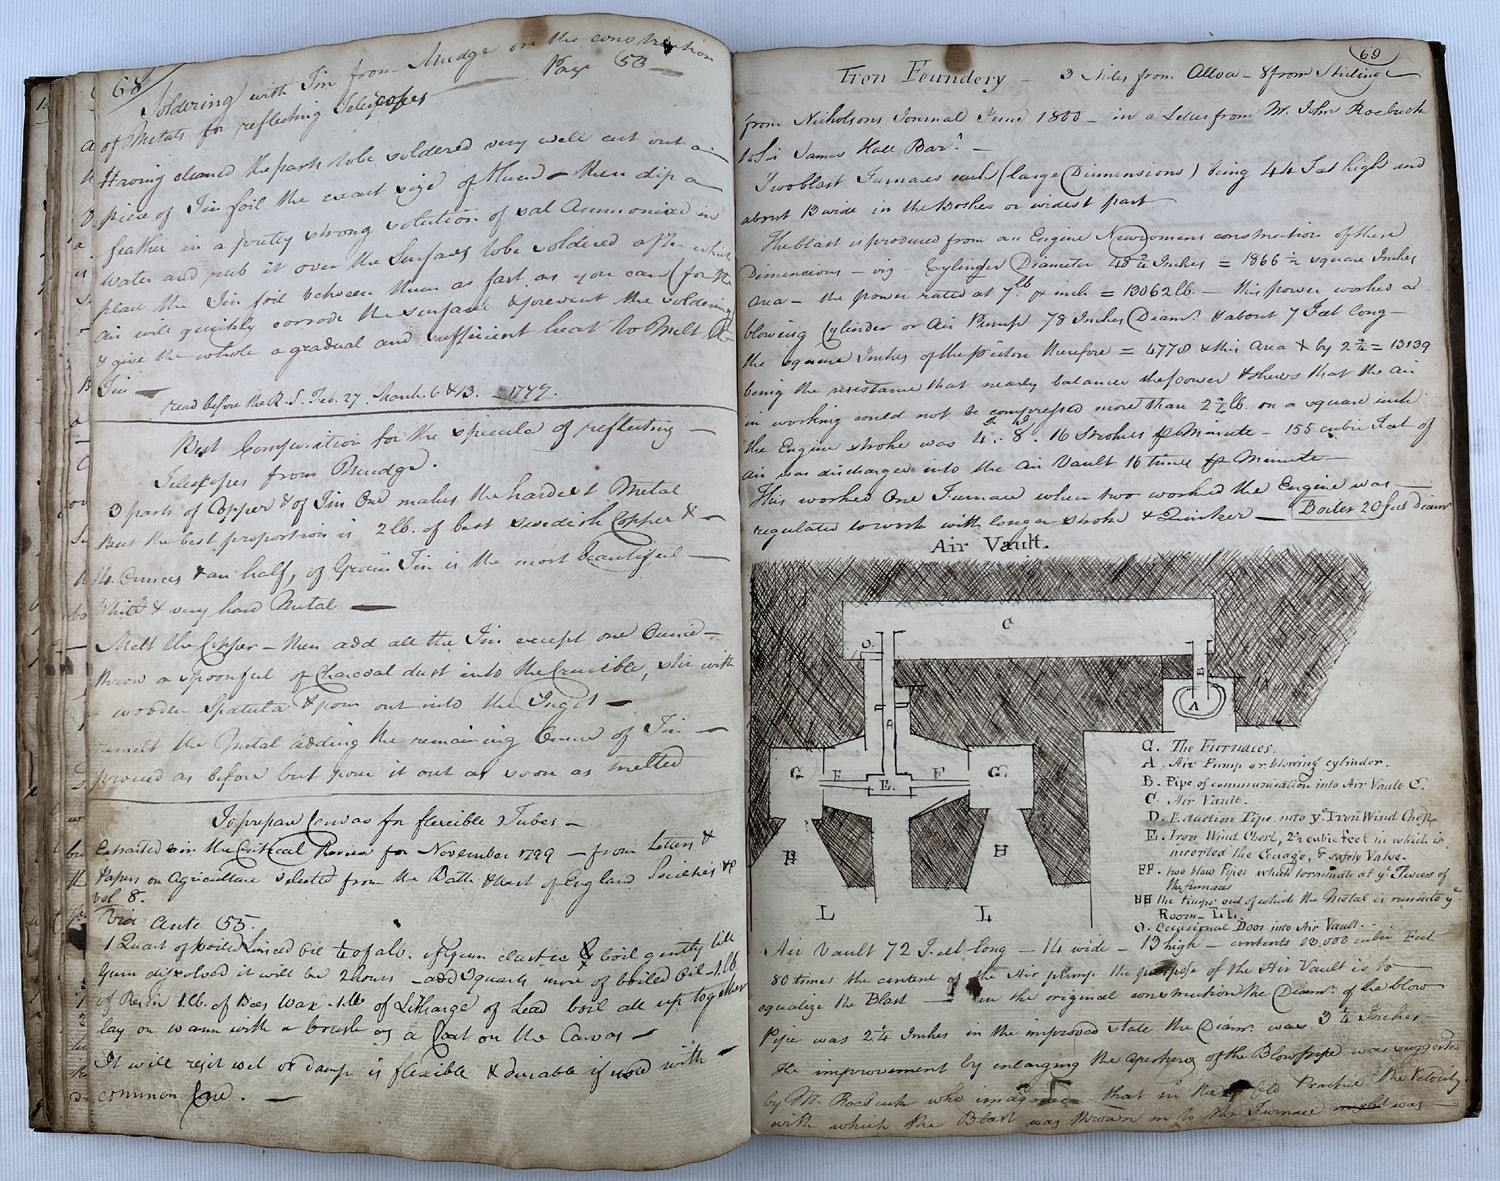 68
Soldering with Tin from Mudge on the construction
of Metals for reflecting Telescopes Page 53
Having cleaned the parts to be soldered very well cut out a
piece of Tin foil the exact size of them then dip a
feather in a pretty strong solution of sal Ammoniac in
water and rub it over the Surfaces to be soldered after which
place the Tin foil between them as fast as you can (for the
air will quickly corrode the surface & prevent the soldering
& give the whole a gradual and sufficient heat to Melt the
Tin —
read before the R. S. Feb. 27. March. 6 & 13. 1777.
Best Composition for the specula of reflecting —
Telescopes from Mudge.
3 parts of Copper & of Tin One makes the hardest Metal
But the best proportion is 2 lb. of best Swedish Copper & —
14 Ounces & an half, of Grain Tin is the most beautifull —
White & very hard Metal —
Melt the Copper — then add all the Tin except one Ounce —
throw a spoonful of Charcoal dust into the Crucible, stir with
a wooden Spatula & pour out into the Ingot —
remelt the Metal adding the remaining Ounce of Tin —
proceed as before but pour it out as soon as melted
To prepare Canvas for flexible Tubes —
Extracted in the Critical Review for November 1799 — from Letters &
Papers on Agriculture selected from the Bath & West of England Societies &c
vol 8.
Vide Ante 55.
1 Quart of boiled Linseed Oil of gum elastic & boil gently till
Gum dissolved it will be 2 hours — add 3 quarts more of boiled Oil — 1 lb
of Resin 1 lb. of Bees Wax — 1 lb of Litharge of Lead boil all up together
lay on warm with a brush as a Coat on the Canvas —
It will resist wet or damp is flexible & durable if used with —
common care. —
69
Iron Foundery — 3 Miles from Alloa — 8 from Stirling
from Nicholsons Journal June 1800 — in a Letter from Mr. John Roebuck
to Sir James Hall Bart. —
Two blast Furnaces each (large Dimensions) being 44 Feet high and
about 13 wide in the boshes or widest part
The blast is produced from an Engine Newcomens construction of these
Dimensions — viz — Cylinder Diameter 48 3/4 Inches = 1866 1/2 square Inches
Area — the power rated at 7 lb pr inch = 13062 lb. — this power worked a
blowing Cylinder or Air Pump 78 Inches Diamr. & about 7 Feet long —
the square Inches of the piston therefore = 4778 & this Area X by 2 3/4 = 13139
being the resistance that nearly balances the power & shews that the air
in working could not be compressed more than 2 3/4 lb. on a square inch
the Engine stroke was 4 . 8 . 16 strokes pr Minute — 155 cubic Feet of
air was discharged into the Air Vault 16 times pr Minute —
This worked One Furnace when two worked the Engine was —
regulated to work with longer stroke & Quicker — Boiler 20 feet Diamr
Air Vault.
C
O.
B
A
D
G F E. F G
H H
L L
G. The Furnaces.
A. Air Pump or blowing cylinder.
B. Pipe of communication into Air Vault C.
C. Air Vault.
D. Eduction Pipe into ye. Iron Wind Chest
E. Iron Wind Chest, 2 1/2 cubic feet in which is
inserted the Guage, & safety Valve.
FF. two blow Pipes which terminate at ye Tweers of
the furnace
HH the timps out of which the Metal is run into ye
Room — LL.
O. Occasional Door into Air Vault.
Air Vault 72 Feet long — 14 wide — 13 high — contents 13,000 cubic Feet
80 times the content of the Air pump the purpose of the Air Vault is to
equalize the Blast — in the original construction the Diamr. of the blow
Pipe was 2 3/4 Inches in the improved state the Diamr. was 3 1/4 Inches
The improvement by enlarging the aperture of the Blow pipe was suggested
by Mr. Roebuck who imagined that in the old Practice the Velocity
with which the Blast was thrown in to the Furnace might was —